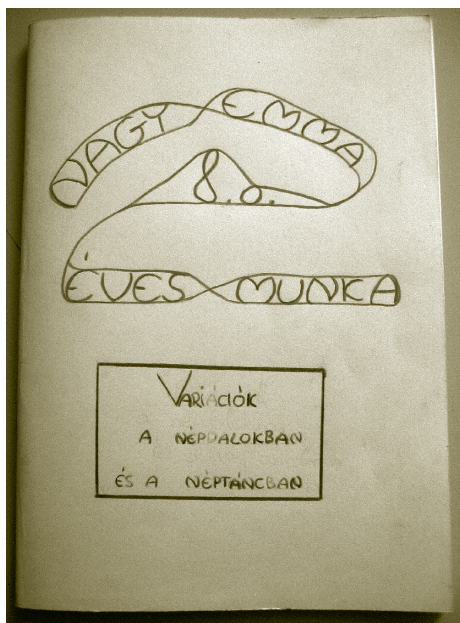 NAGY EMMA
8.o.
ÉVES MUNKA
VARIÁCIÓK
A NÉPDALOKBAN
ÉS A NÉPTÁNCBAN